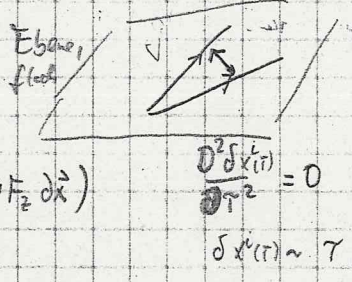 Ebene,
flach
F_z ∂x⃗)
D²δxⁱ(τ)/∂τ² = 0
δxⁱ(τ) ~ τ